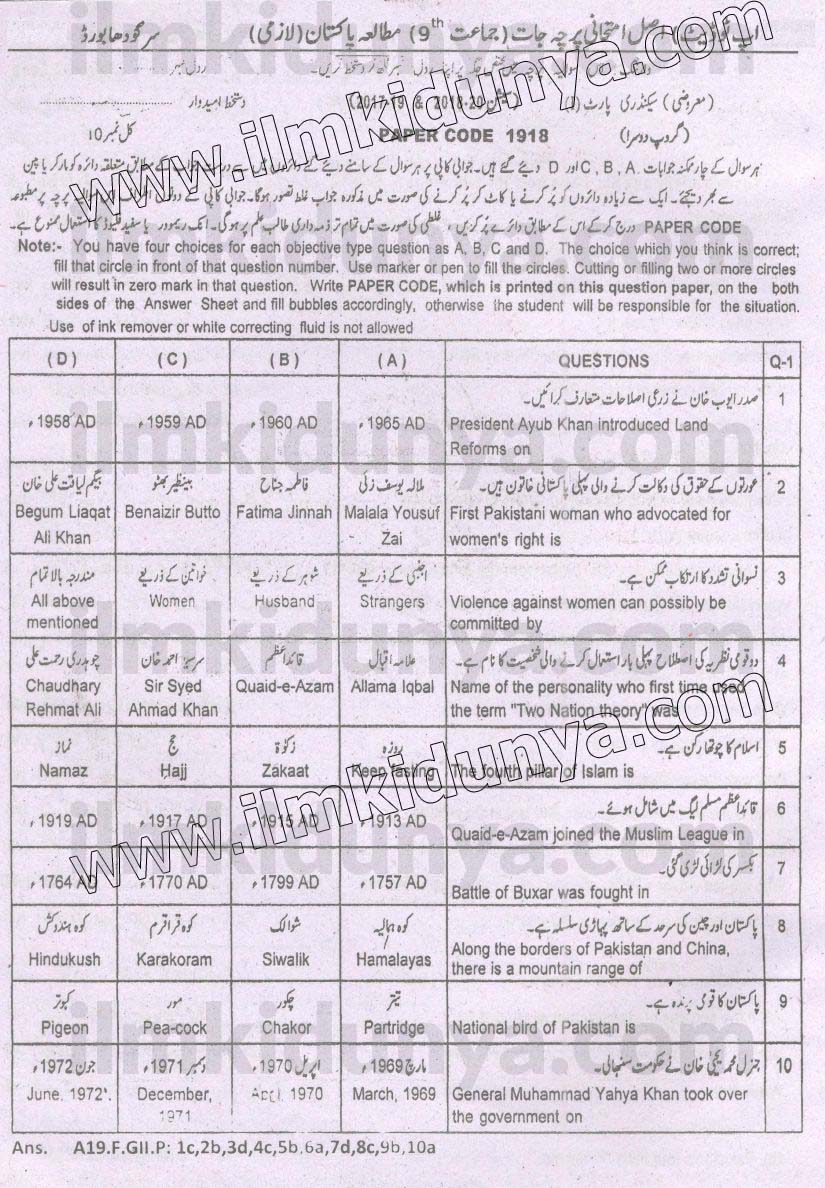 اپ ٹو ڈیٹ اصل امتحانی پرچہ جات (جماعت 9th) مطالعہ پاکستان (لازمی) سرگودھا بورڈ
رول نمبر
(معروضی) سیکنڈری پارٹ (I) (سیشن 2018-20 & 2017-19) دستخط امیدوار
(گروپ دوسرا) PAPER CODE 1918 کل نمبر 10
ہر سوال کے چار ممکنہ جوابات C , B , A اور D دیئے گئے ہیں۔ جوابی کاپی پر ہر سوال کے سامنے دیئے گئے دائروں میں سے درست جواب کے مطابق متعلقہ دائرہ کو مارکر یا پین
سے بھر دیجئے۔ ایک سے زیادہ دائروں کو پُر کرنے یا کاٹ کر پُر کرنے کی صورت میں مذکورہ جواب غلط تصور ہوگا۔ جوابی کاپی کے دونوں پرچہ پر مطبوعہ
PAPER CODE درج کر کے اس کے مطابق دائرے پُر کریں، غلطی کی صورت میں تمام تر ذمہ داری طالب علم پر ہوگی۔ انک ریموور یا سفید فلیوڈ کا استعمال ممنوع ہے۔
Note:- You have four choices for each objective type question as A, B, C and D. The choice which you think is correct;
fill that circle in front of that question number. Use marker or pen to fill the circles. Cutting or filling two or more circles
will result in zero mark in that question. Write PAPER CODE, which is printed on this question paper, on the both
sides of the Answer Sheet and fill bubbles accordingly, otherwise the student will be responsible for the situation.
Use of ink remover or white correcting fluid is not allowed
( D ) ( C ) ( B ) ( A ) QUESTIONS Q-1
صدر ایوب خان نے زرعی اصلاحات متعارف کرائیں۔ 1
1958 AD ء 1959 AD ء 1960 AD ء 1965 AD ء President Ayub Khan introduced Land
Reforms on
بیگم لیاقت علی خان بینظیر بھٹو فاطمہ جناح ملالہ یوسف زئی عورتوں کے حقوق کی وکالت کرنے والی پہلی پاکستانی خاتون ہیں۔ 2
Begum Liaqat Benaizir Butto Fatima Jinnah Malala Yousuf First Pakistani woman who advocated for
Ali Khan Zai women's right is
مندرجہ بالا تمام خواتین کے ذریعے شوہر کے ذریعے اجنبی کے ذریعے نسوانی تشدد کا ارتکاب ممکن ہے۔ 3
All above Women Husband Strangers Violence against women can possibly be
mentioned committed by
چوہدری رحمت علی سر سید احمد خان قائداعظم علامہ اقبال دو قومی نظریہ کی اصطلاح پہلی بار استعمال کرنے والی شخصیت کا نام ہے۔ 4
Chaudhary Sir Syed Quaid-e-Azam Allama Iqbal Name of the personality who first time used
Rehmat Ali Ahmad Khan the term "Two Nation theory" was
نماز حج زکوٰۃ روزہ اسلام کا چوتھا رکن ہے۔ 5
Namaz Hajj Zakaat Keep fasting The fourth pillar of Islam is
قائداعظم مسلم لیگ میں شامل ہوئے۔ 6
1919 AD ء 1917 AD ء 1915 AD ء 1913 AD ء Quaid-e-Azam joined the Muslim League in
بکسر کی لڑائی لڑی گئی۔ 7
1764 AD ء 1770 AD ء 1799 AD ء 1757 AD ء Battle of Buxar was fought in
کوہ ہندوکش کوہ قراقرم شوالک کوہ ہمالیہ پاکستان اور چین کی سرحد کے ساتھ پہاڑی سلسلہ ہے۔ 8
Hindukush Karakoram Siwalik Hamalayas Along the borders of Pakistan and China,
there is a mountain range of
کبوتر مور چکور تیتر پاکستان کا قومی پرندہ ہے۔ 9
Pigeon Pea-cock Chakor Partridge National bird of Pakistan is
جون 1972ء دسمبر 1971ء اپریل 1970ء مارچ 1969ء جنرل محمد یحییٰ خان نے حکومت سنبھالی۔ 10
June. 1972'. December, April. 1970 March, 1969 General Muhammad Yahya Khan took over
1971 the government on
Ans. A19.F.GII.P: 1c,2b,3d,4c,5b,6a,7d,8c,9b,10a
www.ilmkidunya.com
www.ilmkidunya.com
ilmkidunya.com
ilmkidunya.com
ilmkidunya.com
ilmkidunya.com
ilmkidunya.com